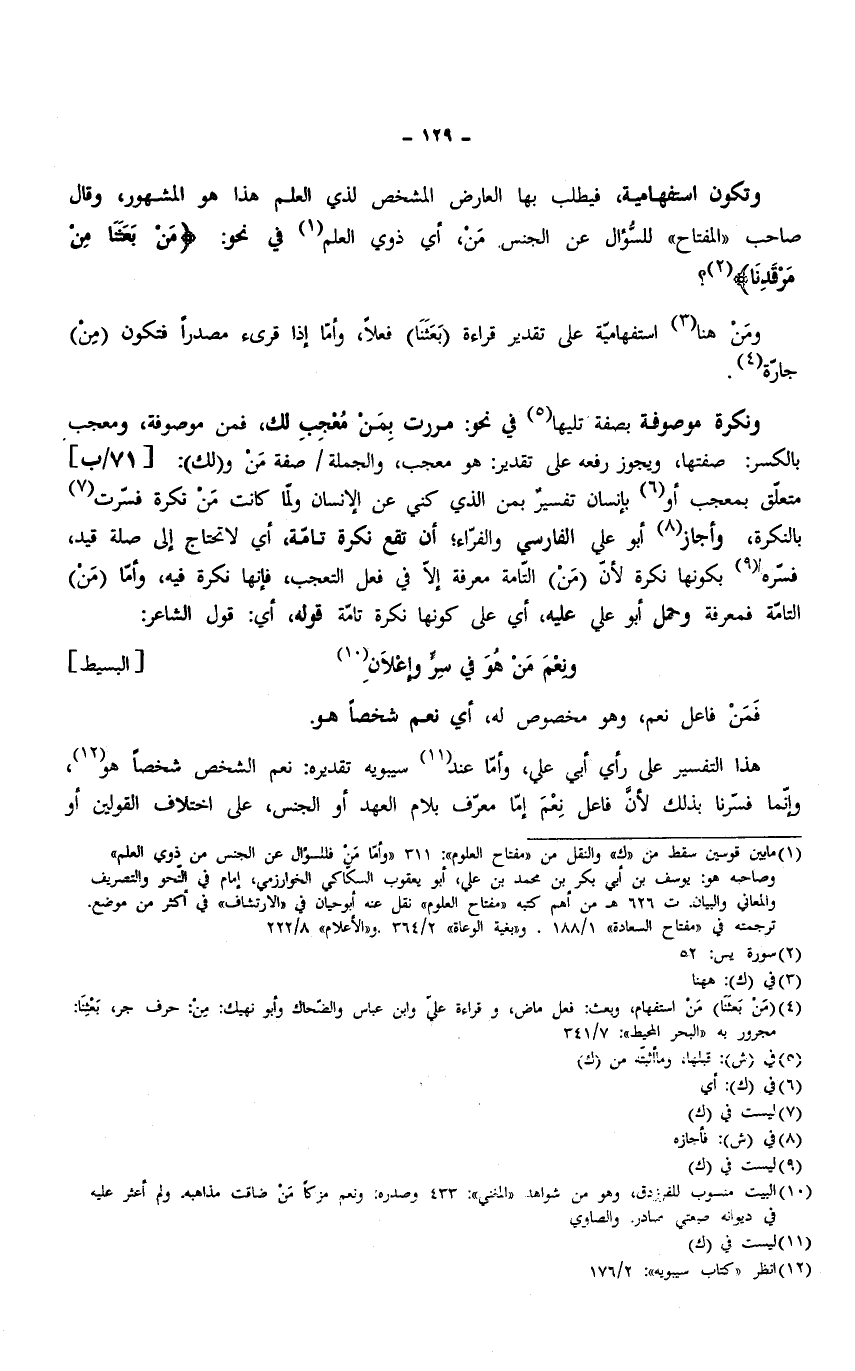 - ١٢٩ -
وتكون استفهامية، فيطلب بها العارض المشخص لذي العلم هذا هو المشهور، وقال
صاحب «المفتاح» للسُّؤال عن الجنس مَنْ، أي ذوي العلم(١) في نحو: ﴿مَنْ بَعَثَنَا مِنْ
مَرْقَدِنَا﴾(٢)؟
ومَنْ هنا(٣) استفهاميّة على تقدير قراءة (بَعَثَنَا) فعلاً، وأمّا إذا قرىء مصدراً فتكون (مِنْ)
جارّة(٤).
ونكرة موصوفة بصفة تليها(٥) في نحو: مررت بِمَنْ مُعْجِبٍ لك، فمن موصوفة، ومعجب
بالكسر: صفتها، ويجوز رفعه على تقدير: هو معجب، والجملة / صفة مَنْ و(لك): [٧١/ب]
متعلّق بمعجب أو(٦) بإنسان تفسيرٌ بمن الذي كني عن الإنسان ولمّا كانت مَنْ نكرة فسّرت(٧)
بالنكرة، وأجاز(٨) أبو علي الفارسي والفرّاء؛ أن تقع نكرة تامّة، أي لاتحتاج إلى صلة قيد،
فسّره(٩) بكونها نكرة لأنّ (مَنْ) التّامة معرفة إلاّ في فعل التعجب، فإنها نكرة فيه، وأمّا (مَنْ)
التامّة فمعرفة وحمل أبو علي عليه، أي على كونها نكرة تامّة قوله، أي: قول الشاعر:
ونِعْمَ مَنْ هُوَ في سِرٍّ وإعْلاَنِ(١٠) [البسيط]
فَمَنْ فاعل نعم، وهو مخصوص له، أي نعم شخصاً هو.
هذا التفسير على رأي أبي علي، وأمّا عند(١١) سيبويه تقديره: نعم الشخص شخصاً هو(١٢)،
وإنّما فسّرنا بذلك لأنَّ فاعل نِعْمَ إمّا معرّف بلام العهد أو الجنس، على اختلاف القولين أو
(١) مابين قوسين سقط من «ك» والنقل من «مفتاح العلوم»: ٣١١ «وأمّا مَنْ فللسؤال عن الجنس من ذوي العلم»
وصاحبه هو: يوسف بن أبي بكر بن محمد بن علي، أبو يعقوب السكّاكي الخوارزمي، إمام في النّحو والتصريف
والمعاني والبيان. ت ٦٢٦ هـ من أهم كتبه «مفتاح العلوم» نقل عنه أبوحيان في «الارتشاف» في أكثر من موضع.
ترجمته في «مفتاح السعادة» ١٨٨/١ . و«بغية الوعاة» ٣٦٤/٢ .و«الأعلام» ٢٢٢/٨
(٢) سورة يس: ٥٢
(٣) في (ك): ههنا
(٤) (مَنْ بَعَثَنَا) مَنْ استفهام، وبعث: فعل ماض، و قراءة عليّ وابن عباس والضّحاك وأبو نهيك: مِنْ: حرف جر، بَعْثِنَا:
مجرور به «البحر المحيط»: ٣٤١/٧
(٥) في (ش): قبلها، وماأثبتّه من (ك)
(٦) في (ك): أي
(٧) ليست في (ك)
(٨) في (ش): فأجازه
(٩) ليست في (ك)
(١٠) البيت منسوب للفرزدق، وهو من شواهد «المغني»: ٤٣٣ وصدره: ونعم مزكأ مَنْ ضاقت مذاهبه. ولم أعثر عليه
في ديوانه صبعتي صادر. والصاوي
(١١) ليست في (ك)
(١٢) انظر «كتاب سيبويه»: ١٧٦/٢